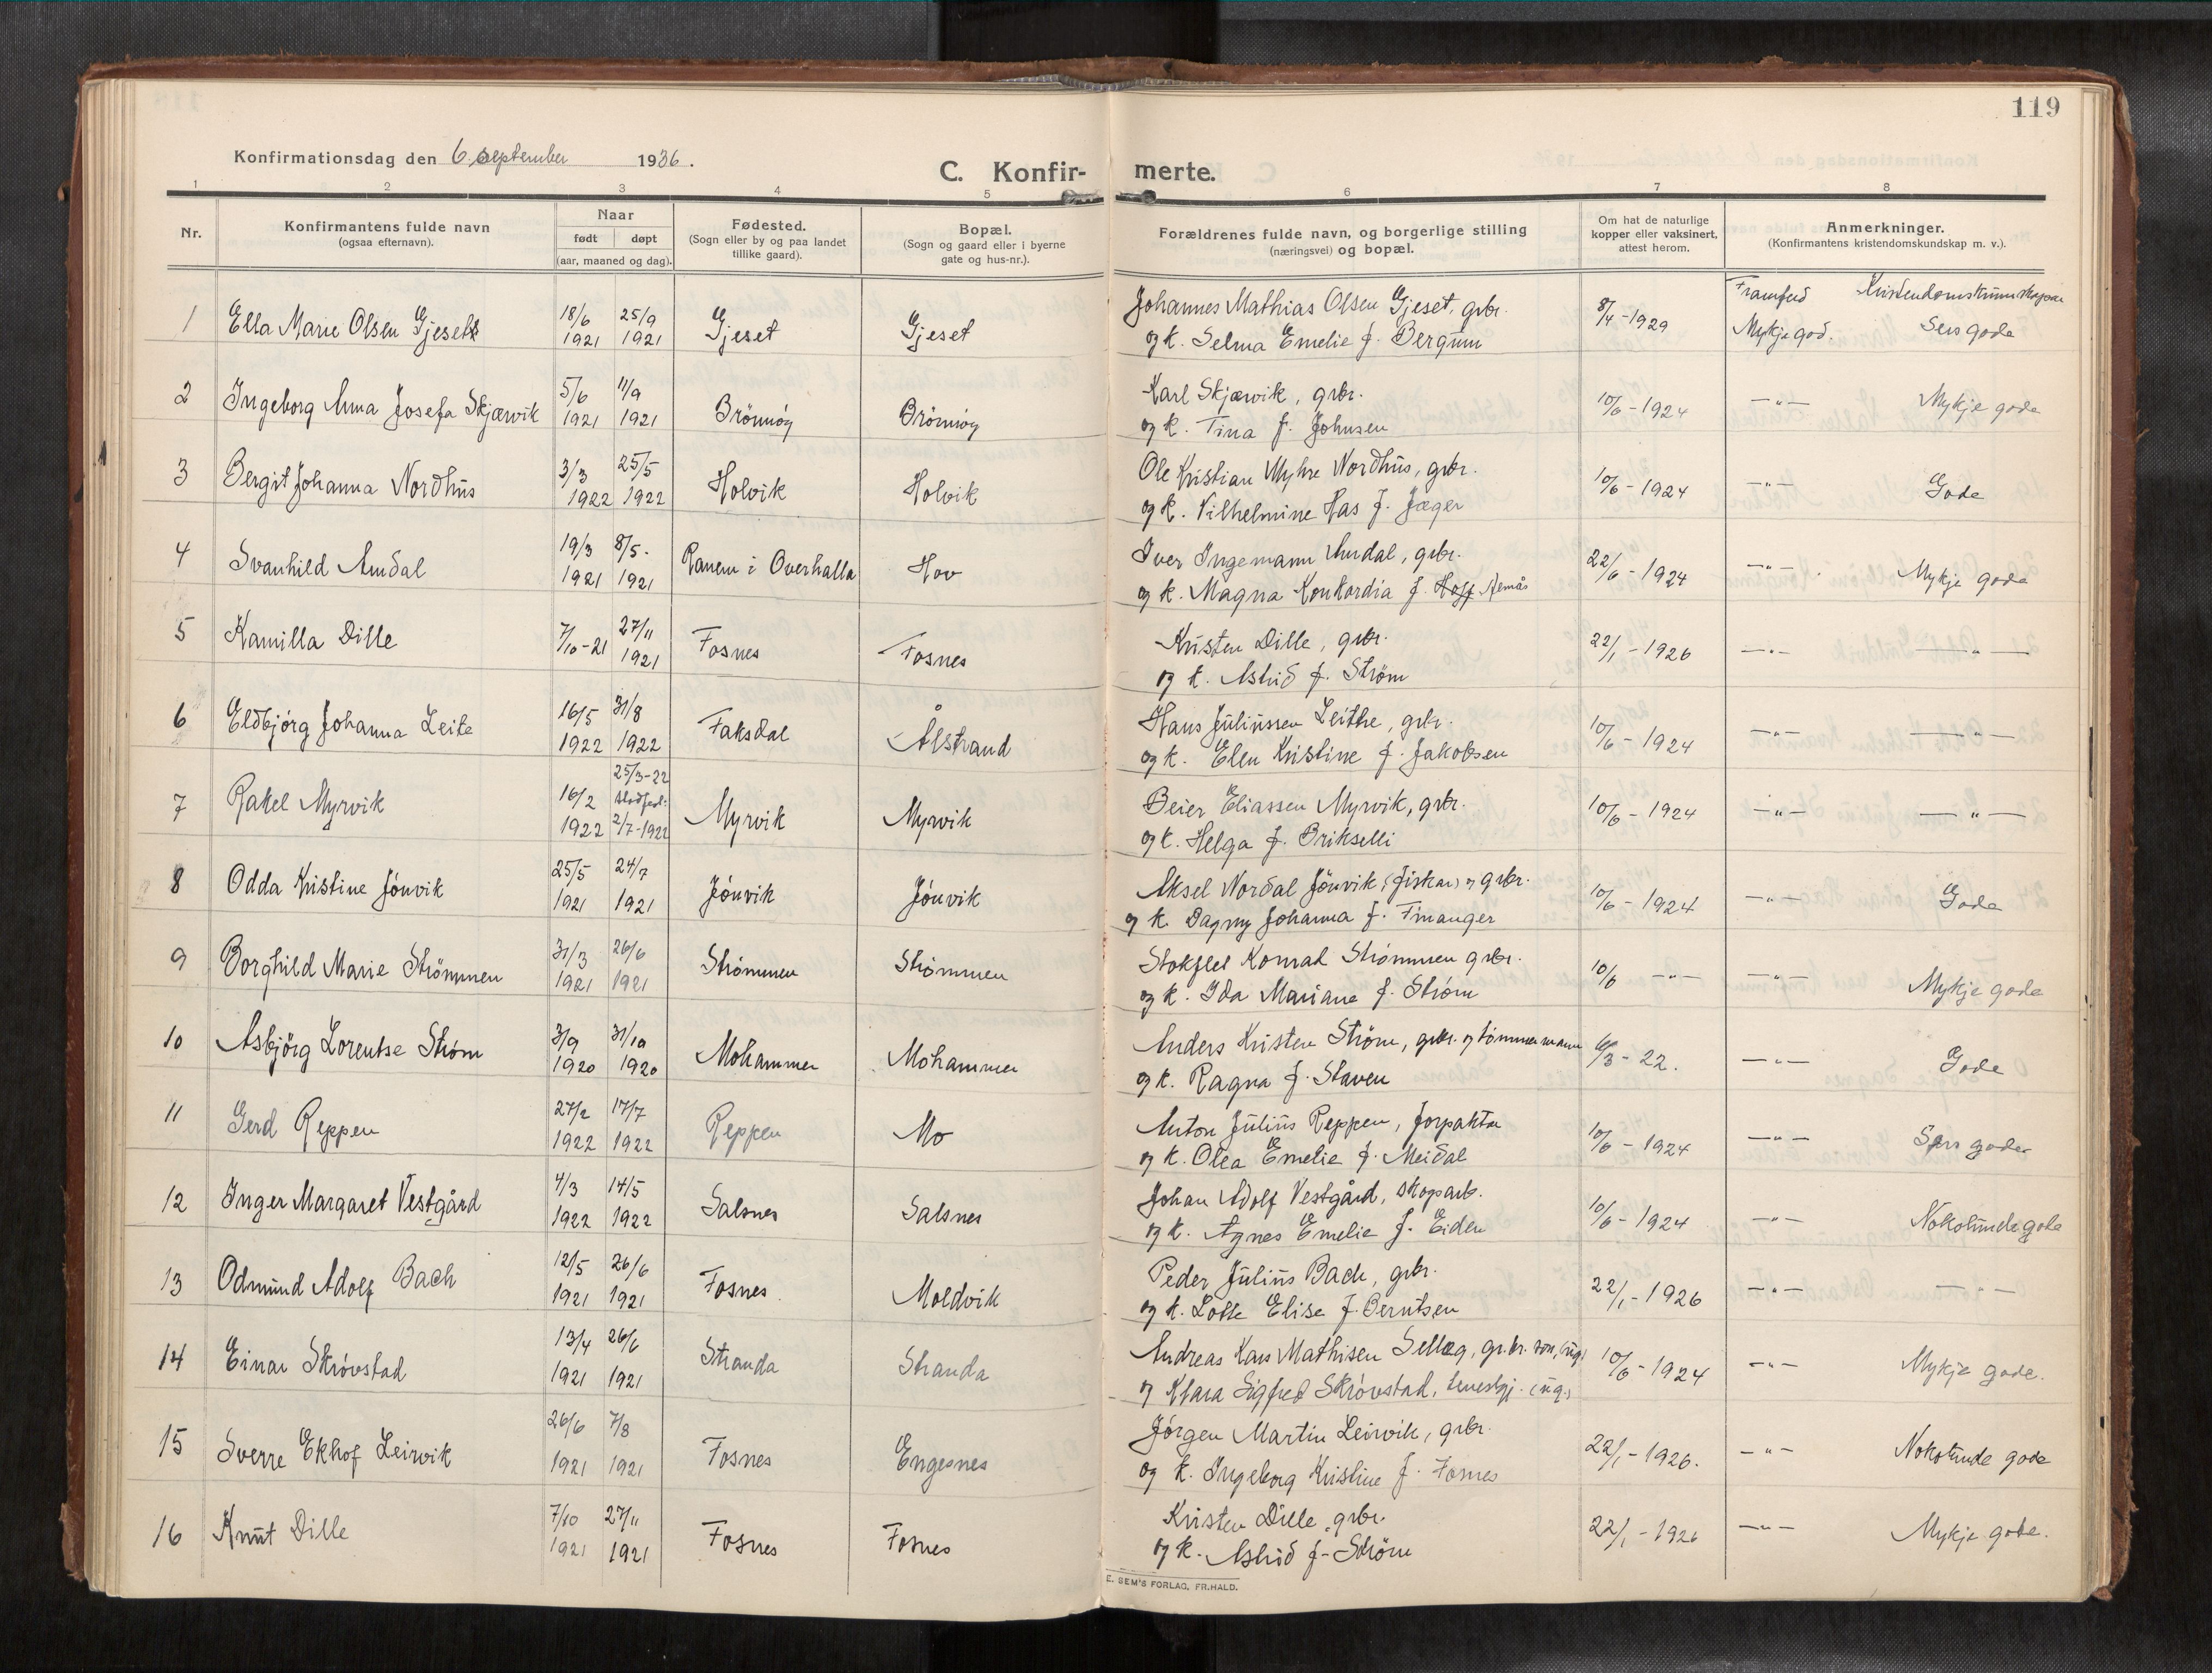 119
Konfirmationsdag den 6. september 1936.
C. Konfir- merte.
1 2 3 4 5 6 7 8
Nr. | Konfirmantens fulde navn (ogsaa efternavn). | Naar født døpt (aar, maaned og dag). | Fødested. (Sogn eller by og paa landet tillike gaard). | Bopæl. (Sogn og gaard eller i byerne gate og hus-nr.). | Forældrenes fulde navn, og borgerlige stilling (næringsvei) og bopæl. | Om hat de naturlige kopper eller vaksinert, attest herom. | Anmerkninger. (Konfirmantens kristendomskundskap m. v.).
Framferd Kristendomskunnskapen
1 Ella Marie Olsen Gjeset 18/6 1921 25/9 1921 Gjeset Gjeset Johannes Mathias Olsen Gjeset, grbr. 8/4-1929 Mykje god. Sers gode
og k. Selma Emelie f. Bergum
2 Ingeborg Anna Josefa Skjærvik 5/6 1921 11/9 1921 Brönnöy Brönnöy Karl Skjærvik, grbr. 10/6-1924 —"— Mykje gode
og k. Tina f. Johnsen
3 Bergit Johanna Nordhus 3/3 1922 25/5 1922 Holvik Holvik Ole Kristian Myhre Nordhus, grbr. 10/6-1924 —"— Gode
og k. Vilhelmine Has f. Jæger
4 Svanhild Amdal 19/3 1921 8/5. 1921 Ranem i Overhalla Hov Iver Ingemann Amdal, grbr. 22/6-1924 —"— Mykje gode
og k. Magna Konkordia f. Hoff
5 Kamilla Dille 7/10-21 27/11 1921 Fosnes Fosnes Kristen Dille, grbr. 22/1-1926 —"— —"—
og k. Astrid f. Strøm
6 Eldbjörg Johanna Leite 16/5 1922 31/8 1922 Faksdal Ålstrand Hans Juliussen Leithe, grbr. 10/6-1924 —"— —"—
og k. Elen Kristine f. Jakobsen
7 Rakel Myrvik 16/2 1922 25/3-22 stadfest: 2/7-1922 Myrvik Myrvik Beier Eliassen Myrvik, grbr. 10/6-1924 —"— —"—
og k. Helga f. Brikselli
8 Odda Kristine Jönvik 25/5 1921 24/7 1921 Jönvik Jönvik Aksel Nordal Jönvik, (fiskar) og grbr. 10/6-1924 —"— Gode
og k. Dagny Johanna f. Finanger
9 Borghild Marie Strömmen 31/3 1921 26/6 1921 Strömmen Strömmen Stokflet Konrad Strömmen grbr. 10/6 —"— —"— Mykje gode
og k. Ida Mariane f. Ström
10 Asbjörg Lorentse Ström 3/9 1920 31/10 1920 Mohammer Mohammer Anders Kristen Ström, grbr. og tömmermann /3-22. —"— Gode
og k. Ragna f. Staven
11 Gerd Reppen 27/2 1922 17/7 1922 Reppen Mo Anton Julius Reppen, forpaktar 10/6-1924 —"— Sers gode
og k. Olea Emelie f. Meidal
12 Inger Margaret Vestgård 4/3 1922 14/5 1922 Salsnes Salsnes Johan Adolf Vestgård, skogsarb. 10/6-1924 —"— Nokolunde gode
og k. Agnes Emelie f. Eiden
13 Odmund Adolf Bach 12/5 1921 26/6 1921 Fosnes Moldvik Peder Julius Bach, grbr. 22/1-1926 —"— —"—
og k. Lotte Elise f. Berntsen
14 Einar Skrövstad 13/4 1921 26/6 1921 Stranda Stranda Andreas Kars Mathisen Sellæg, gr.br. son, (ug.) 10/6-1924 —"— Mykje gode.
og Klara Sigfred Skrövstad, tenestgj. (ug.)
15 Sverre Ekhof Leirvik 26/6 1921 7/8 1921 Fosnes Engesnes Jörgen Martin Leirvik, grbr. 22/1-1926. —"— Nokolunde gode
og k. Ingeborg Kristine f. Fosnes
16 Knut Dille 7/10 1921 27/11 1921 Fosnes Fosnes Kristen Dille, grbr. 22/1-1926 —"— Mykje gode.
og k. Astrid f. Ström
E. SEM'S FORLAG, FR.HALD.